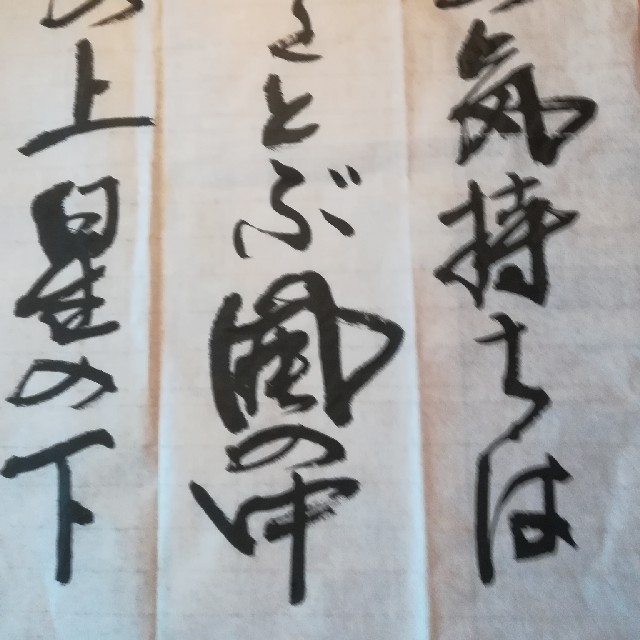 気持ちは
をとぶ風の中
の上星の下